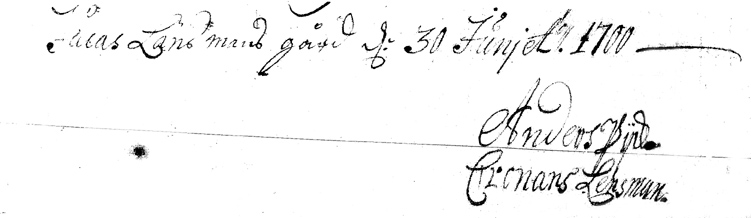 Länsmans gård d. 30 Junij A:o 1700
Anders
Cronans Lensman.